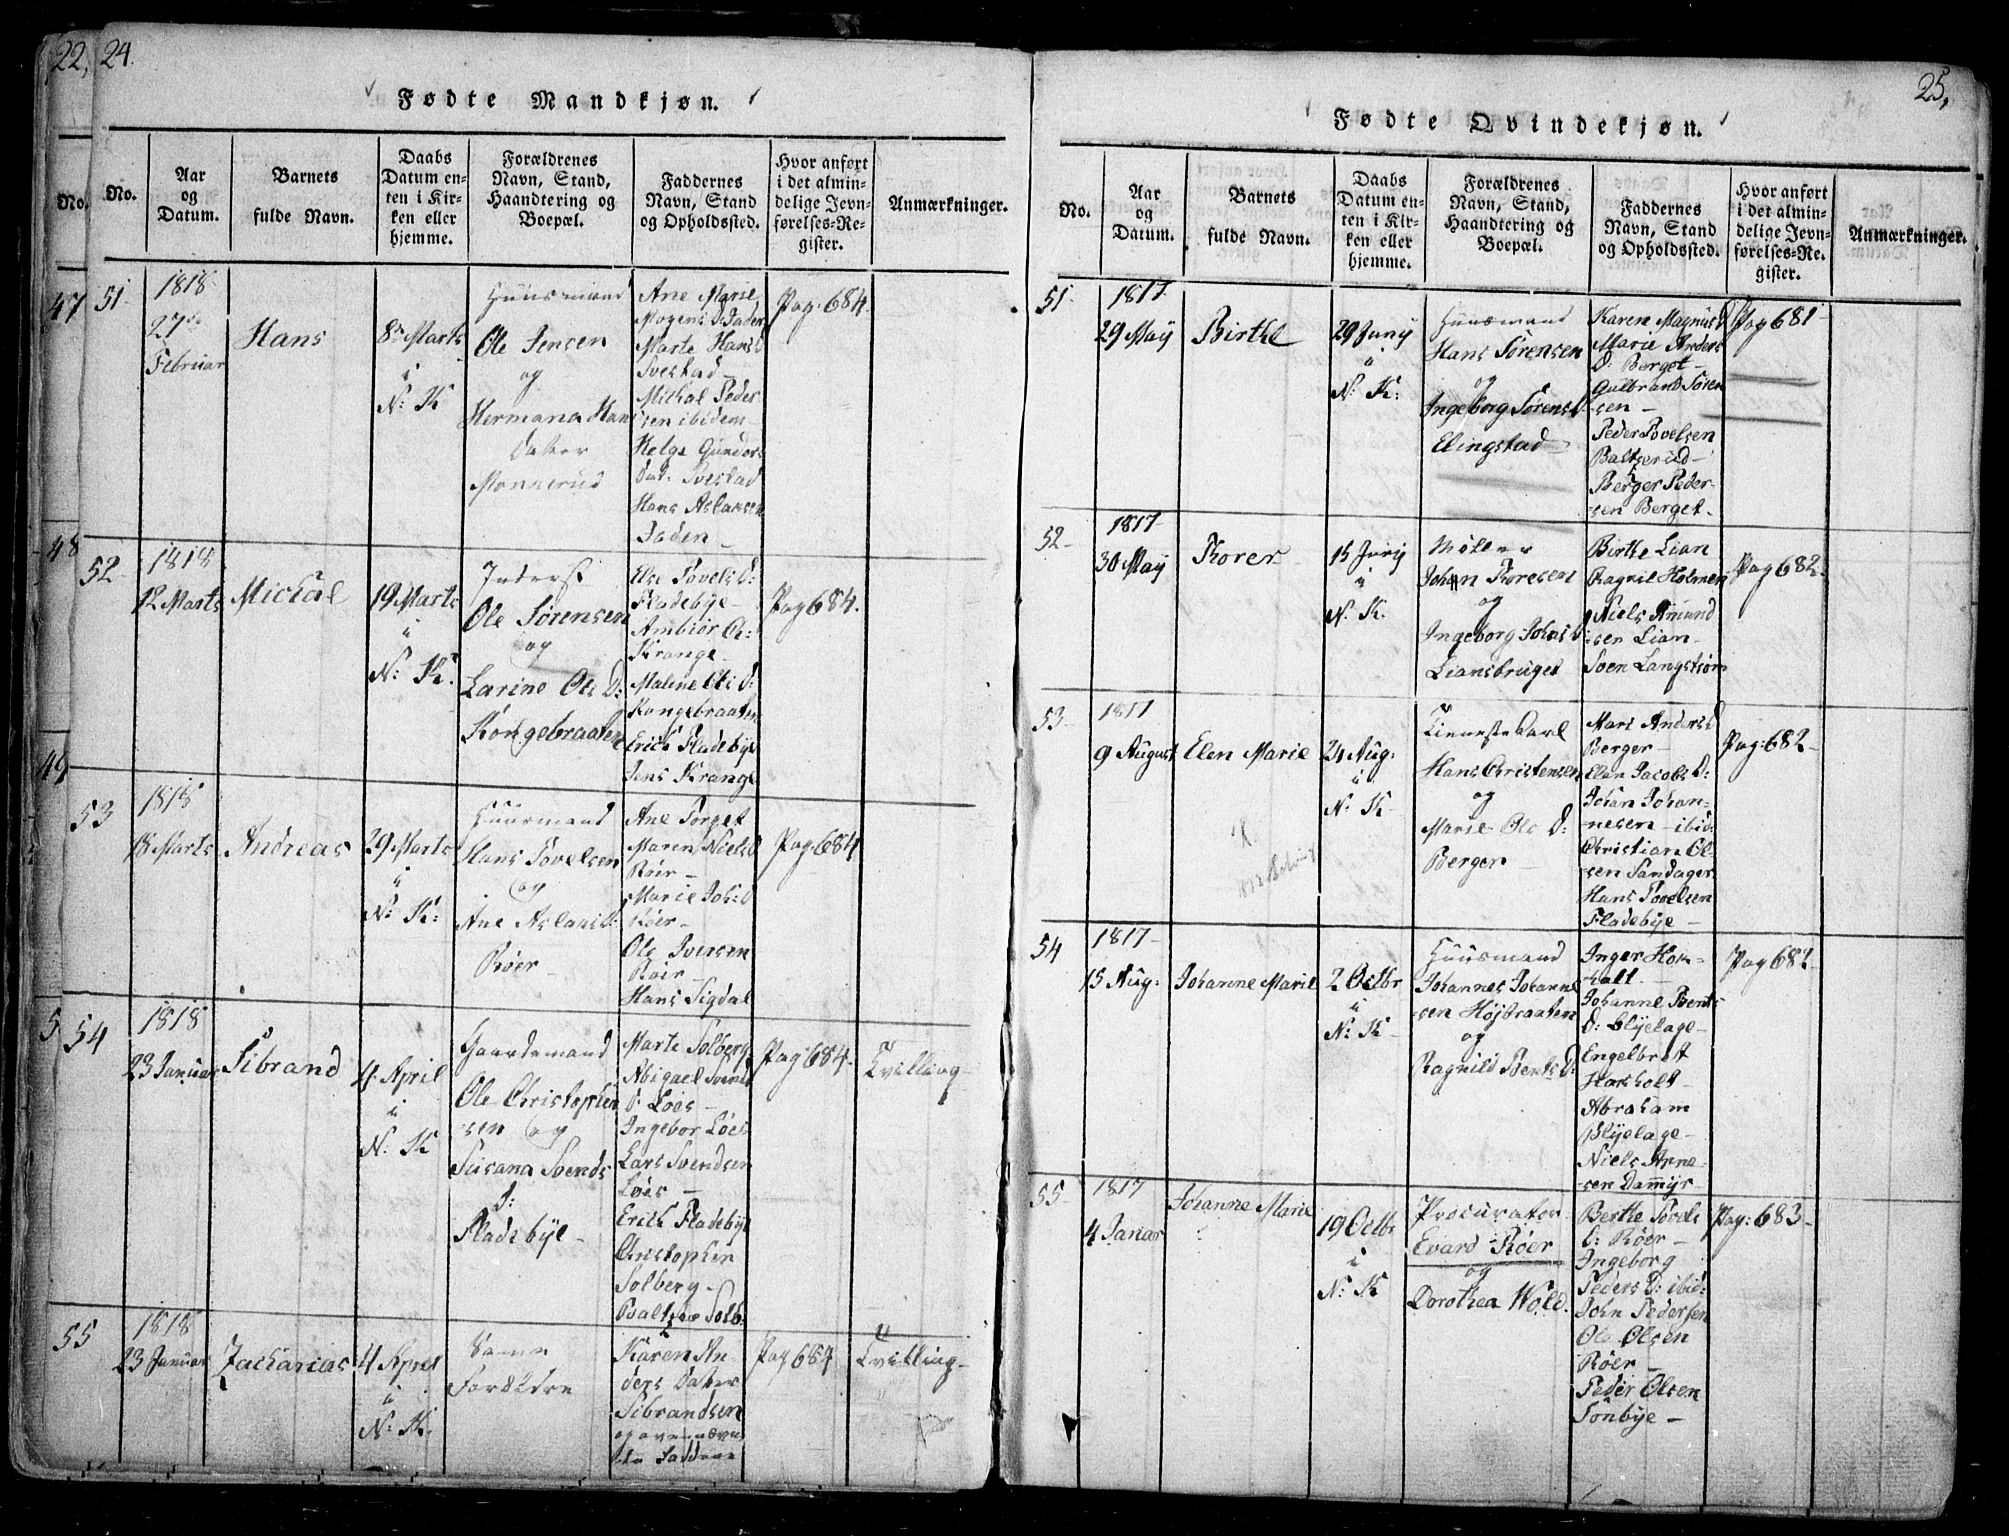 22, 24.
Fødte Mandkjøn.
No.
No.
Aar
og
Datum.
Barnets
fulde Navn.
Daabs
Datum en-
ten i Kir-
ken eller
hjemme.
Forældrenes
Navn, Stand,
Haandtering og
Boepæl.
Faddernes
Navn, Stand
og Opholdssted.
Hvor anført
i det almin-
delige Jevn-
førelses-Re-
gister.
Anmærkninger.
47
48
49
5
51
1818
27de
Februar
Hans
8de Marts
i
N: K
Huusmand
Ole Jensen
og
Hermana Hans
Datter
Monnerud
Ane Marie
Mogens D: Jaden
Marte Hans D
Svestad
Michal Peder
sen ibidem
Helge Gundors
Dat. Svestad
Hans Aslaksen
Jaden
Pag: 684.
52
1818
12 Marts
Michal
19 Marts
i
N: K.
Inderst
Ole Sørensen
og
Larine Ols D:
Kongebraaten
Else Povels D:
Fladebye
Ambiør Ol:
Krange
Malene Ols D:
Kongebraaten
Erich Fladebye
Jens Krange
Pag 684.
53
1818
18 Marts
Andreas
29 Marts
i
N: K:
Huusmand
Hans Povelsen
og
Ane Aslaks D:
Røer
Ane Torget
Maren Niels D
Røer
Marie Joh: D
Røer
Ole Iversen
Røer
Hans Sigdal
Pag 684
54
1818
23 Januar
Sibrand
4 April
i
N: K
Gaardemand
Ole Christophers
-sen og
Susana Svends
D:
Fladebye
Marte Solberg
Abigael Svends
D: Løes
Ingebor Løes
Lars Svendsen
Løes
Erich Fladebye
Christopher
Solberg
Baltser Solb:
Pag: 684.
Tvilling
55
1818
23 Januar
Zacharias
4 April
i
N: K.
Samme
Forældre
Karen An
ders Datter
Sibrandsen
og ovennævn
te Faddere
Pag 684
Tvilling
25,
Fødte Qvindekjøn.
No.
Aar
og
Datum.
Barnets
fulde Navn.
Daabs
Datum en-
ten i Kir-
ken eller
hjemme.
Forældrenes
Navn, Stand,
Haandtering og
Boepæl.
Faddernes
Navn, Stand
og Opholdssted.
Hvor anført
i det almin-
delige Jevn-
førelses-Re-
gister.
Anmærkninger.
51
1817
29 May
Birthe
29 Juny
i
N: K:
Huusmand
Hans Sørensen
og
Ingeborg Sørens D
Elingstad
Karen Magnus D
Marie Anders
D: Berget
Gulbrand Søren
-sen
Peder Povelsen
Baltserud
Berger Peder-
sen Berget.
Pag 681
52
1817
30 May
Korer
15 Juny
i
N: K.
Møller
Johan Koresen
og
Ingeborg Johs D
Liansbruget
Birthe Lian
Ragnil Holmen
Niels Amund
-sen Lian
Soen Langstiør
Pag 682.
53
1817
9 August
Elen Marie
24 Aug:
i
N: K
Tienestekarl
Hans Christensen
og
Marie Ols D:
Berger
Mari Anders D
Berger
Elen Jacobs D:
Johan Johan-
-nesen ibid:
Christian Ol-
sen Sandager
Hans Povelsen
Fladebye
Pag: 682
54
1817
15 Aug:
Johanne Marie
2 Octbr
i
N: K
Huusmand
Johannes Johanne
-sen Højbraaten
og
Ragnild Bents D:
Inger Hor-
-holt
Johanne Bents
D: Blyelage
Engelbret
Horsholt
Abraham
Blyelage
Niels Arne-
-sen Dammyr
Pag 682
55
1817
4 Januar
Johanne Marie
19 Octbr
i
N: K
Procurator
Evard Røer
og
Dorothea Wold.
Berthe Povels
D: Røer
Ingeborg
Peders D: ibid:
John Pedersen
Ole Olsen
Røer
Peder Olsen
Sonbye
Pag: 683